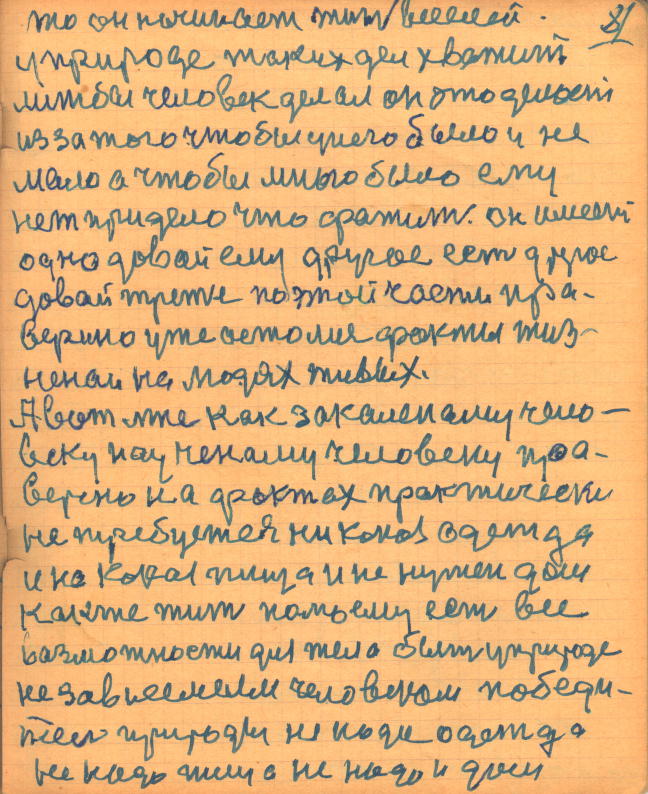 81
то он начинает жит веселей.
уприроде таких дел хватит
лиж бы человек делал он это делает
из за того чтобы унего было и не
мало а чтобы много было ему
нет придело что хватит. он имеет
одно довай ему другое ест другое
довай трете поэтой части пра-
верино уже самолие факты жиз-
ненаи на людях живых.
А вот мне как закаленаму чело-
веку наученаму человеку пра-
верено на фактах практически
не требуется никокоя одежда
и никокоя пища и не нужен дом
какже жит помоему ест все
возможности для тела быт уприроде
независемым человеком победи-
тел природы не надо одежда
не надо пища не надо и дом